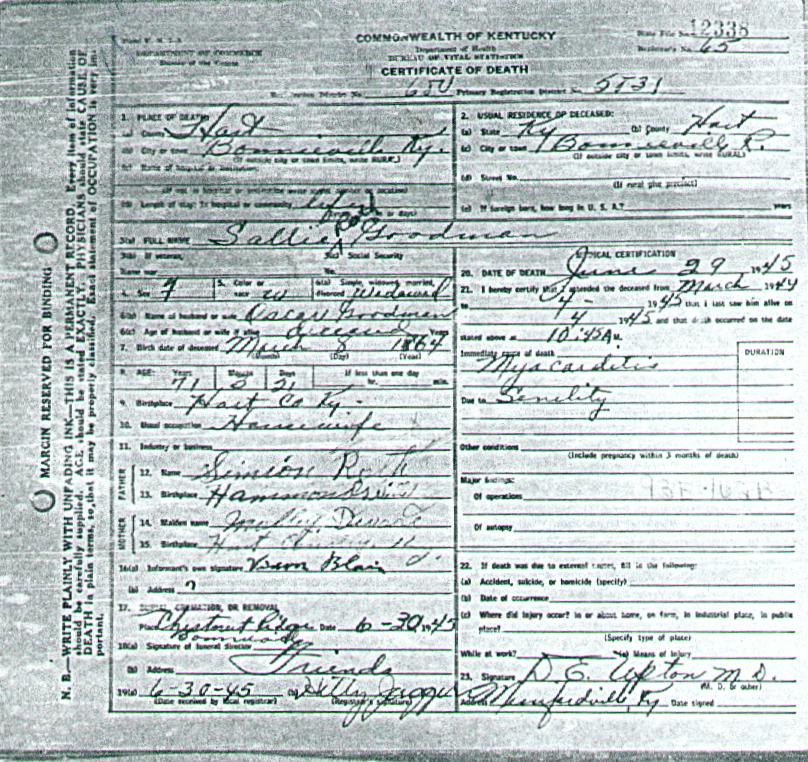 COMMONWEALTH OF KENTUCKY
State File No. 12338
DEPARTMENT OF COMMERCE
Department of Health
Registrar's No. 65
Bureau of the Census
BUREAU OF VITAL STATISTICS
CERTIFICATE OF DEATH
Primary Registration District No. 5731
1. PLACE OF DEATH:
(a) County Hart
(b) City or town Bonnieville Ky.
(If outside city or town limits, write RURAL)
(c) Name of hospital or institution:
(If not in hospital or institution write street number or location)
(d) Length of stay: In hospital or community life
or days)
2. USUAL RESIDENCE OF DECEASED:
(a) State Ky (b) County Hart
(c) City or town Bonnieville R.
(If outside city or town limits, write RURAL)
(d) Street No.
(If rural give precinct)
(e) If foreign born, how long in U. S. A.? years
3(a) FULL NAME Sallie Roth Goodman
3(b) If veteran, 3(c) Social Security
Name war No.
4. Sex F 5. Color or race W 6(a) Single, widowed, married, divorced Widowed
6(b) Name of husband or wife Oscar Goodman
6(c) Age of husband or wife if alive deceased Years
7. Birth date of deceased March 8 1864
(Month) (Day) (Year)
8. AGE: Years Months Days If less than one day
71 2 21 hr. min.
9. Birthplace Hart Co Ky -
10. Usual occupation Housewife
11. Industry or business
FATHER
12. Name Simeon Roth
13. Birthplace Hammondsville
MOTHER
14. Maiden name
15. Birthplace Hart
16(a) Informant's own signature Blair
(b) Address ?
17. BURIAL, CREMATION, OR REMOVAL
Place Chestnut Ridge Date 6-30-1945
Bonnieville
18(a) Signature of funeral director
(b) Address Friends
19(a) 6-30-45 (b)
(Date received by local registrar) (Registrar's signature)
MEDICAL CERTIFICATION
20. DATE OF DEATH June 29 1945
21. I hereby certify that I attended the deceased from March 1944
to 1945 that I last saw him alive on
1945 and that death occurred on the date
stated above at 10:45 A m.
Immediate cause of death
Myocarditis
DURATION
Due to Senility
Other conditions
(Include pregnancy within 3 months of death)
Major findings:
Of operations
Of autopsy
22. If death was due to external causes, fill in the following:
(a) Accident, suicide, or homicide (specify)
(b) Date of occurrence
(c) Where did injury occur? In or about home, on farm, in industrial place, in public
place?
(Specify type of place)
While at work? (e) Means of Injury
23. Signature D. E. Upton M D.
(M. D. or other)
Address Munfordville Ky Date signed
MARGIN RESERVED FOR BINDING
N. B.—WRITE PLAINLY WITH UNFADING INK—THIS IS A PERMANENT RECORD. Every item of information
should be carefully supplied. AGE should be stated EXACTLY. PHYSICIANS should state CAUSE OF
DEATH in plain terms, so that it may be properly classified. Exact statement of OCCUPATION is very im-
portant.